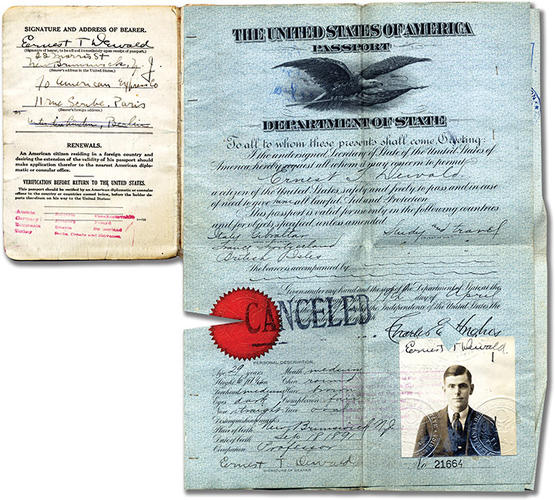 SIGNATURE AND ADDRESS OF BEARER.
Ernest T Dewald
New Brunswick, N. J.
(Bearer's address in the United States.)
c/o American Express Co
11 rue Scribe, Paris
(Bearer's foreign address.)
Berlin
RENEWALS.
An American citizen residing in a foreign country and
desiring the extension of the validity of his passport should
make application therefor to the nearest American diplo-
matic or consular office.
VERIFICATION BEFORE RETURN TO THE UNITED STATES.
This passport should be verified by an American diplomatic or consular
officer in the country
THE UNITED STATES OF AMERICA
PASSPORT
DEPARTMENT OF STATE
To all to whom these presents shall come Greeting:
I the undersigned Secretary of State of the United States of
America, hereby request all whom it may concern to permit
Ernest T Dewald
a citizen of the United States safely and freely to pass and in case
of need to give him all lawful Aid and Protection
This passport is valid for use only in the following countries
and for objects specified unless amended
Italy Gibraltar Study and Travel
France Switzerland
British Isles
The bearer is accompanied by
Given under my hand and the seal of the Department of State
day of April
Independence of the United States the
CANCELED
Charles E Hughes
PERSONAL DESCRIPTION.
Age 29 years Mouth medium
Height Chin round
Forehead medium Hair brown
Eyes dark Complexion fair
Nose straight Face oval
Distinguishing marks
Place of birth New Brunswick N. J.
Date of birth Sep 18 1891
Occupation Professor
Ernest T Dewald
Ernest T Dewald.
No 21664